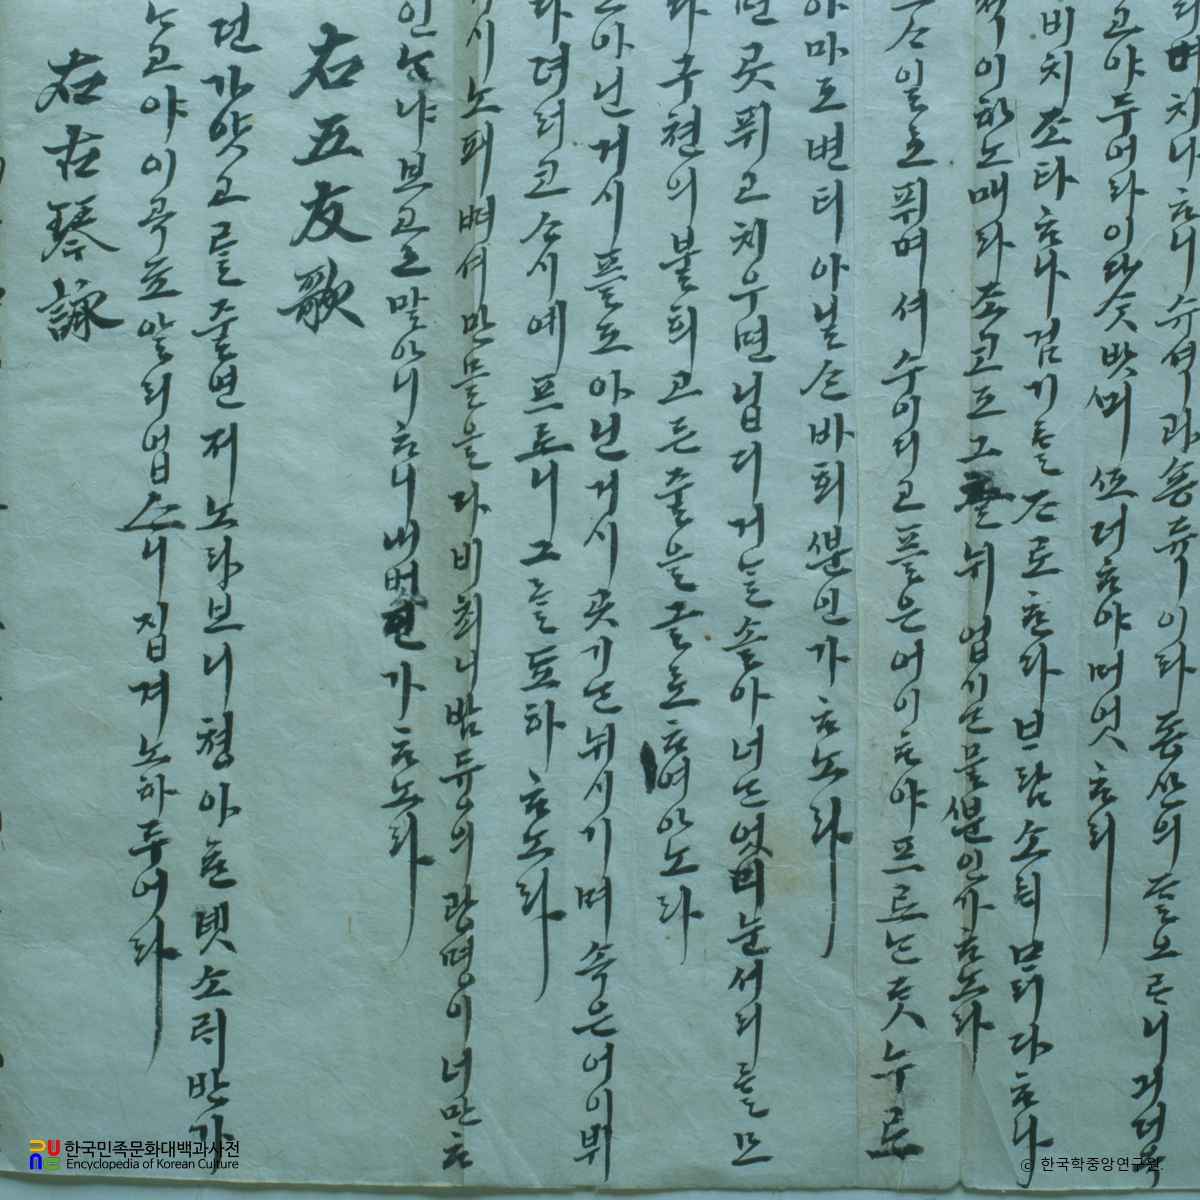 리 버치니 ᄒᆞ니 슈셕과 숑듁이라 동산의 ᄃᆞᆯ 오ᄅᆞ니 긔 더옥
고야 두어라 이 다ᄉᆞᆺ 밧긔 ᄯᅩ 더ᄒᆞ야 머엇ᄒᆞ리
비치 조타 ᄒᆞ나 검기ᄅᆞᆯ ᄌᆞ로 ᄒᆞᆫ다 ᄇᆞ람 소ᄅᆡ ᄆᆞᆰ다 ᄒᆞ나
적이 하노매라 조코도 그츨 뉘 업기ᄂᆞᆫ 믈ᄲᅮᆫ인가 ᄒᆞ노라
일로 퓌며셔 수이 디고 플은 어이ᄒᆞ야 프르ᄂᆞᆫ ᄃᆞᆺ 누르
아마도 변티 아닐ᄉᆞᆫ 바회ᄲᅮᆫ인가 ᄒᆞ노라
면 곳 퓌고 치우면 닙 디거ᄂᆞᆯ 솔아 너ᄂᆞᆫ 엇디 눈서리ᄅᆞᆯ 모
다 구쳔의 불희 고ᄃᆞᆫ 줄을 글로 ᄒᆞ여 아노라
아닌 거시 플도 아닌 거시 곳기ᄂᆞᆫ 뉘 시기며 속은 어이 뷔
다 뎌러코 ᄉᆞ시예 프르니 그를 됴하 ᄒᆞ노라
거시 노피 ᄠᅥ셔 만믈을 다 비최니 밤듕의 광명이 너만ᄒᆞ
인ᄂᆞ냐 보고도 말 아니 ᄒᆞ니 내 벋인가 ᄒᆞ노라
右五友歌
던 가얏고ᄅᆞᆯ 줄 연저 노라보니 쳥아ᄒᆞᆫ 녯 소ᄅᆡ 반가
노고야 이 곡됴 알 리 업스니 집겨 노하두어라
右古琴詠
한국민족문화대백과사전
Encyclopedia of Korean Culture
ⓒ 한국학중앙연구원.